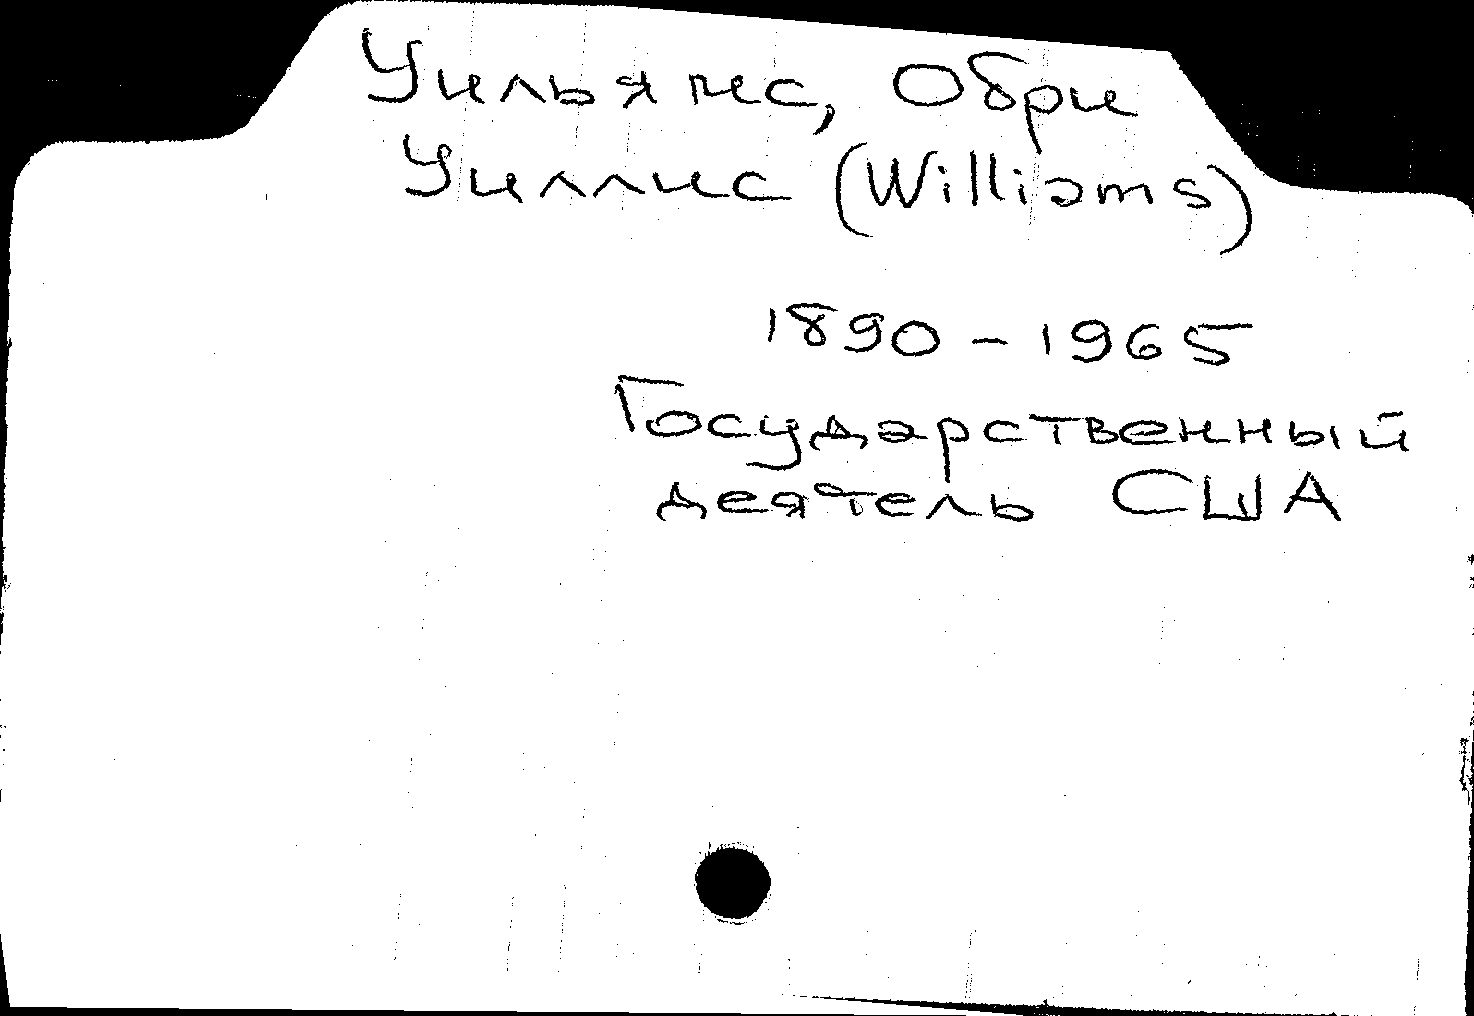 Уильямс, Обри
Уиллис (Williams)
1890 - 1965
Государственный
деятель США